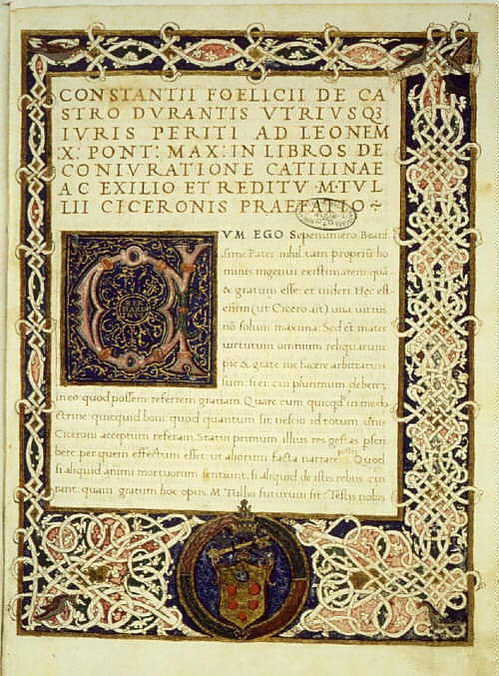 CONSTANTII FOELICII DE CA
STRO DVRANTIS VTRIVSQ3
IVRIS PERITI AD LEONEM
:X: PONT: MAX: IN LIBROS DE
CONIVRATIONE CATILINAE
AC EXILIO ET REDITV M·TVL
LII CICERONIS PRAEFATIO~
CVM EGO Sepenumero Beatis
sime Pater nihil tam proprium ho
minis ingenui existimarem: quã
& gratum esse: et videri Hęc est
enim (ut Cicero ait) una virtus
nõ solum maxima: Sed et mater
virtutum omnium reliquarum
pie & grate me facere arbitratus
sum: si ei: cui plurimum deberem
in eo: quod possem: referrem gratiam. Quare cum quicqđ in me do
ctrine: quicquid boni: quod quantum sit: nescio id totum
Ciceroni acceptum referam. Statui primum illius res gestas pscri
bere: per quem effectum esset: ut aliorum facta narrare Quod
si aliquid animi mortuorum sentiunt: si aliquid de istis rebus cu
rant: quam gratum hoc opus M. Tullio futurum sit: Testis nobis